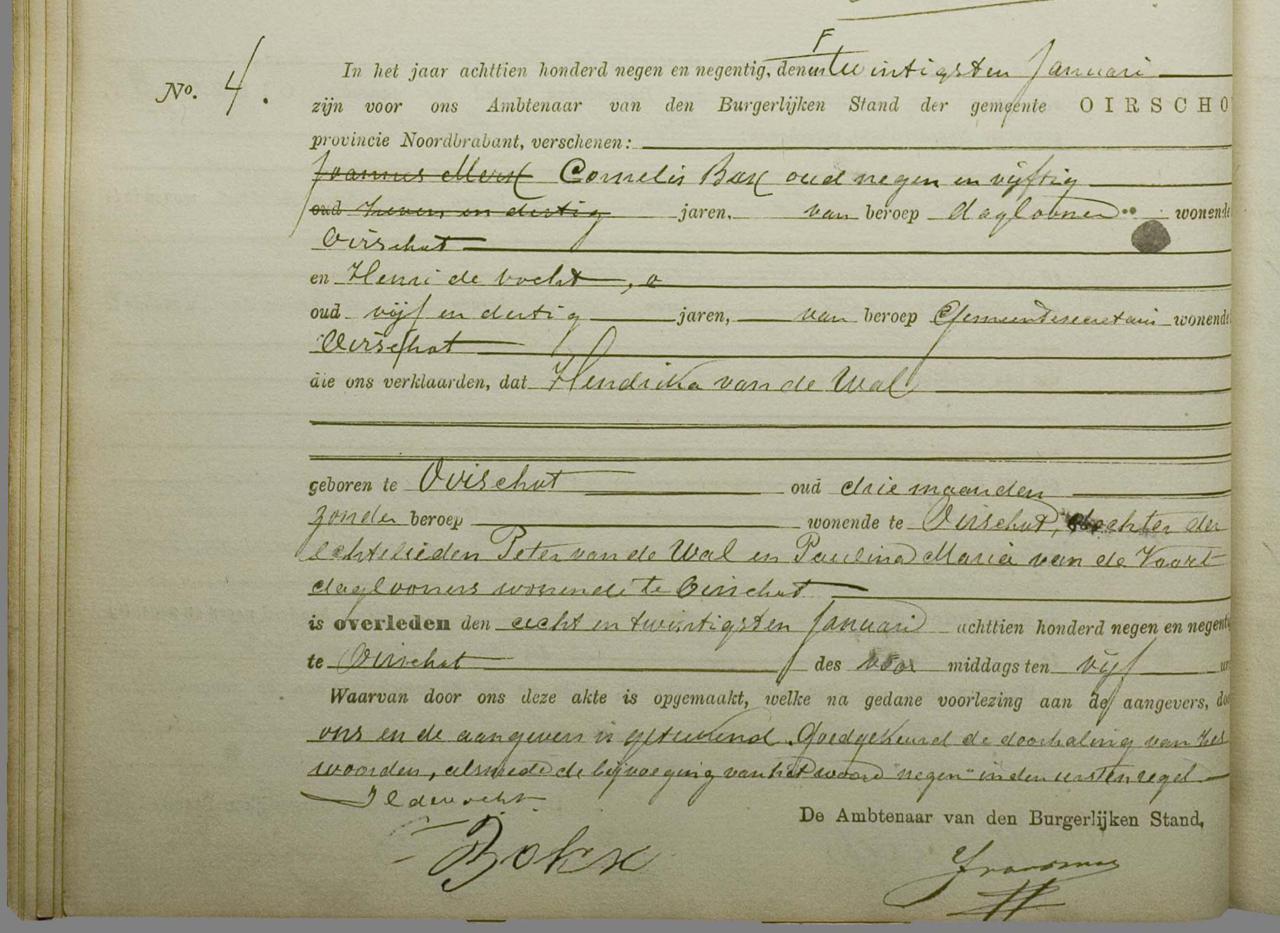 No. 4.
In het jaar achttien honderd negen en negentig, den twintigsten Januari
zijn voor ons Ambtenaar van den Burgerlijken Stand der gemeente OIRSCHO
provincie Noordbrabant, verschenen:
Joannes Merx Cornelis Bax oud negen en vijftig
oud zeven en dertig jaren, van beroep daglooner wonende
Oirschot
en Henri de Vocht,
oud vijf en dertig jaren, van beroep Gemeentesecretaris wonende
Oirschot
die ons verklaarden, dat Hendrika van de Wal
geboren te Oirschot oud drie maanden
zonder beroep wonende te Oirschot, dochter der
echtelieden Peter van de Wal en Paulina Maria van de Voort
daglooners wonende te Oirschot
is overleden den acht en twintigsten Januari achttien honderd negen en negenti
te Oirschot des voor middags ten vijf ur
Waarvan door ons deze akte is opgemaakt, welke na gedane voorlezing aan de aangevers, doo
ons en de aangevers is geteekend. Goedgekeurd de doorhaling van zes
woorden, alsmede de bijvoeging van het woord "negen" in den eersten regel
HdeVocht
De Ambtenaar van den Burgerlijken Stand,